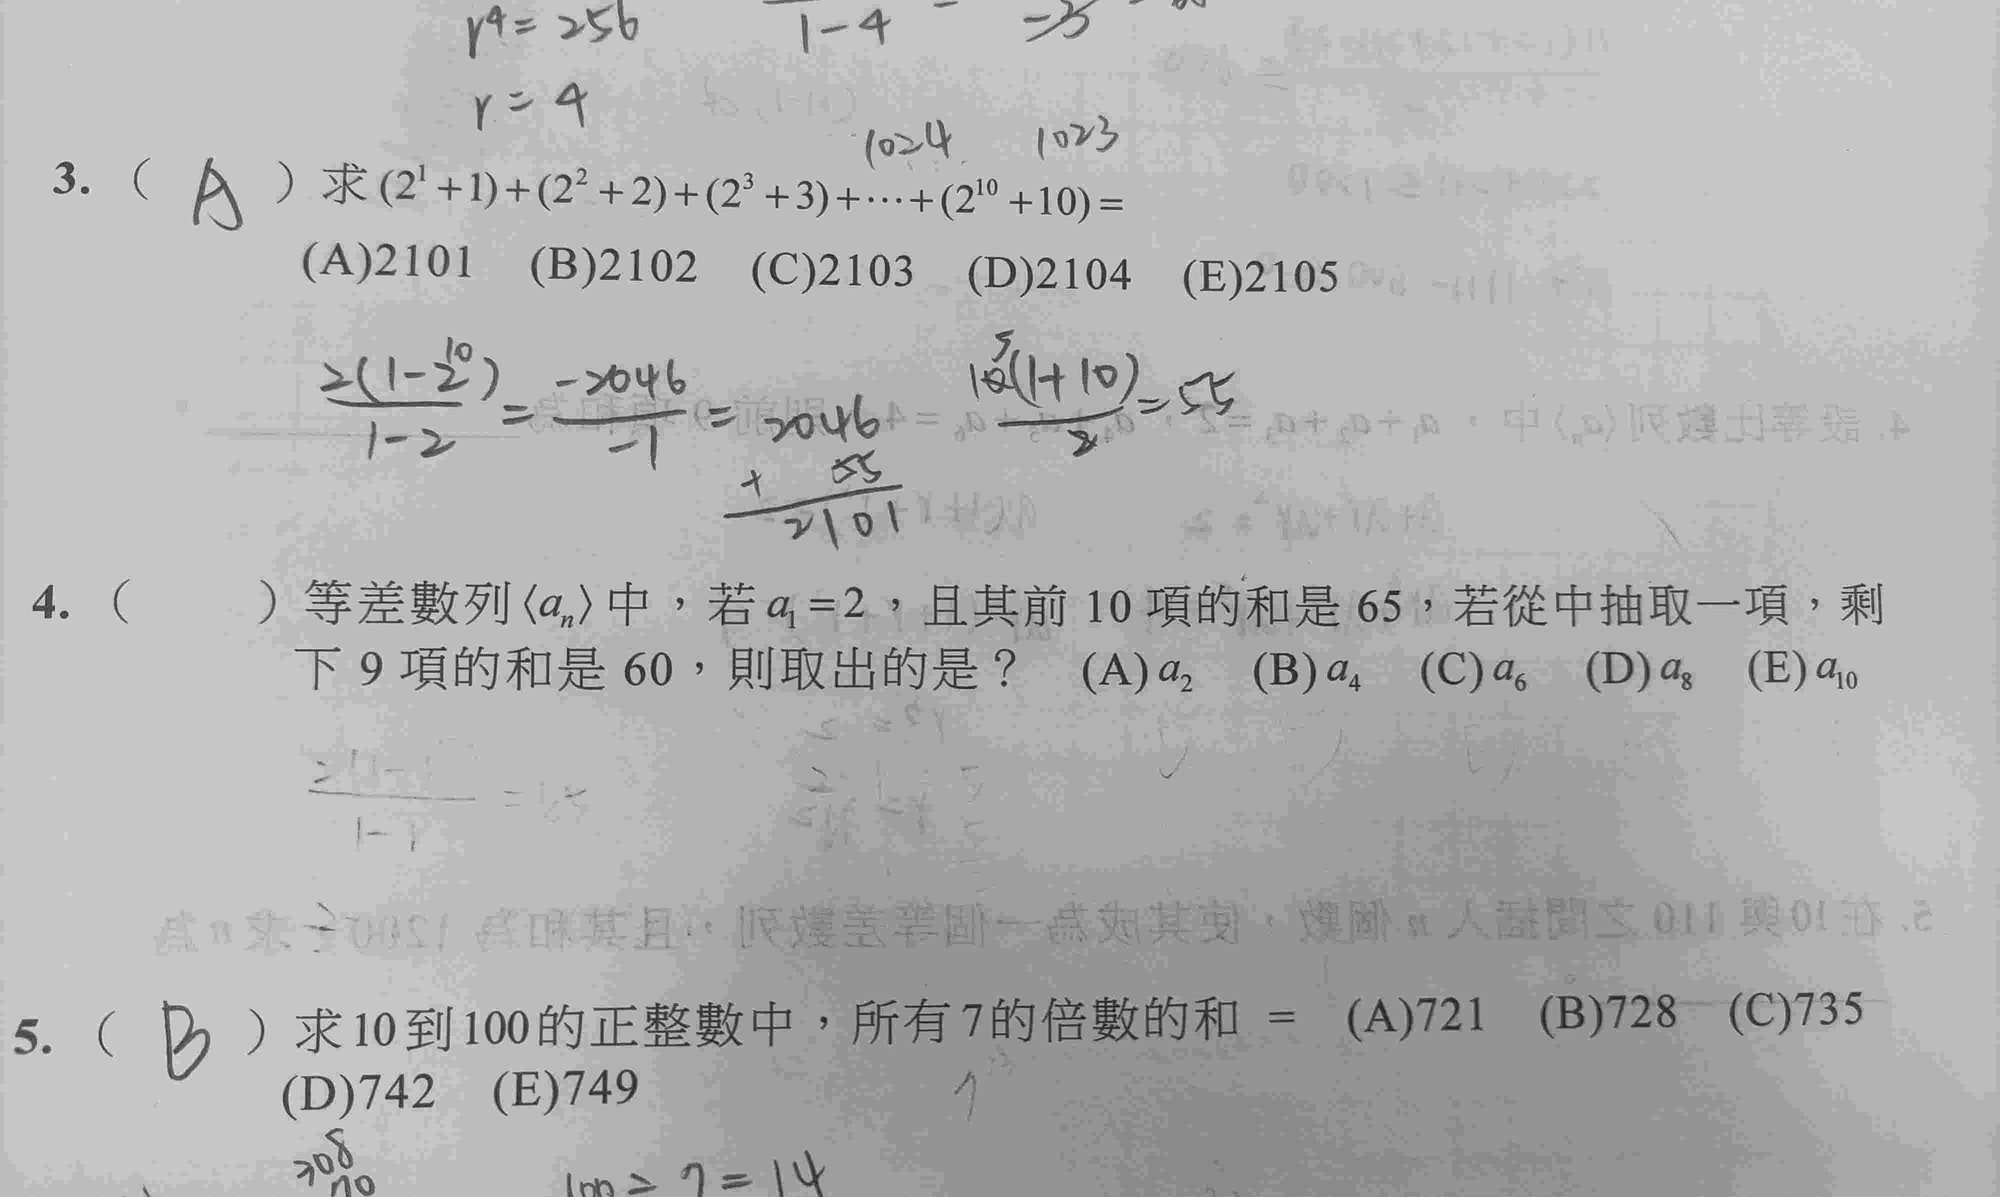 r⁴ = 256
1-4 = -3
r = 4
1024 1023
3. ( A ) 求 (2¹+1)+(2²+2)+(2³+3)+⋯+(2¹⁰+10)=
(A)2101 (B)2102 (C)2103 (D)2104 (E)2105
2(1-2¹⁰)/1-2 = -2046/-1 = 2046 10(1+10)/2 = 55
5
+ 55
2101
4. ( ) 等差數列⟨aₙ⟩中，若 a₁=2，且其前 10 項的和是 65，若從中抽取一項，剩
下 9 項的和是 60，則取出的是？ (A) a₂ (B) a₄ (C) a₆ (D) a₈ (E) a₁₀
5. ( B ) 求10到100的正整數中，所有7的倍數的和 = (A)721 (B)728 (C)735
(D)742 (E)749
308
70 100 ÷ 7 = 14